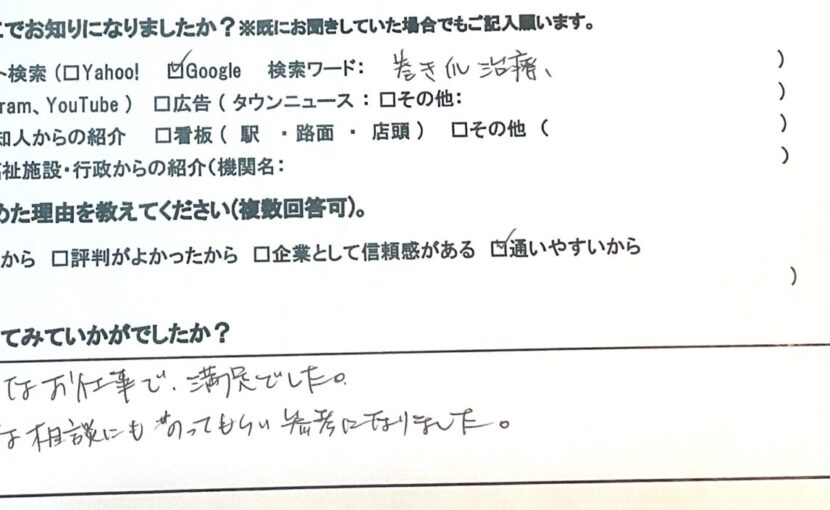 こでお知りになりましたか？※既にお聞きしていた場合でもご記入願います。
ト検索（□Yahoo!　☑Google　検索ワード：　巻き爪 治療、　）
ram、YouTube）　□広告（タウンニュース：□その他：　）
知人からの紹介　□看板（駅　・路面・店頭）　□その他（　）
祉施設・行政からの紹介（機関名：　）
めた理由を教えてください（複数回答可）。
から　□評判がよかったから　□企業として信頼感がある　☑通いやすいから
）
てみていかがでしたか？
なお仕事で、満足でした。
な相談にものってもらい参考になりました。